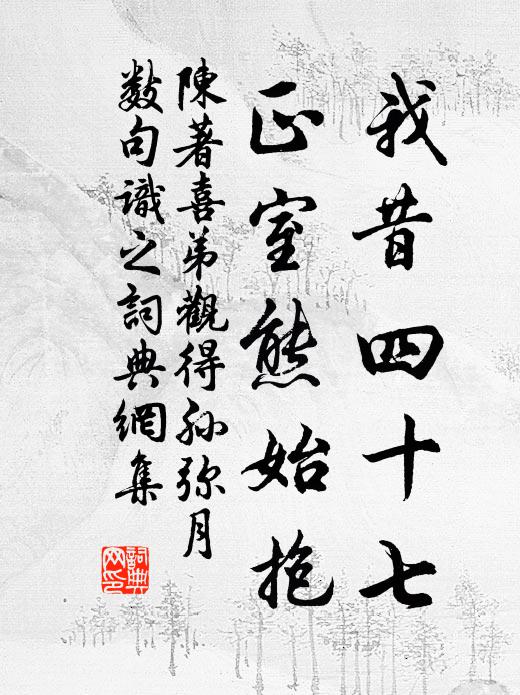 我昔四十七
正室熊始抱
陳著喜弟觀得孙弥月
数句識之詞典網集
詞典
网印